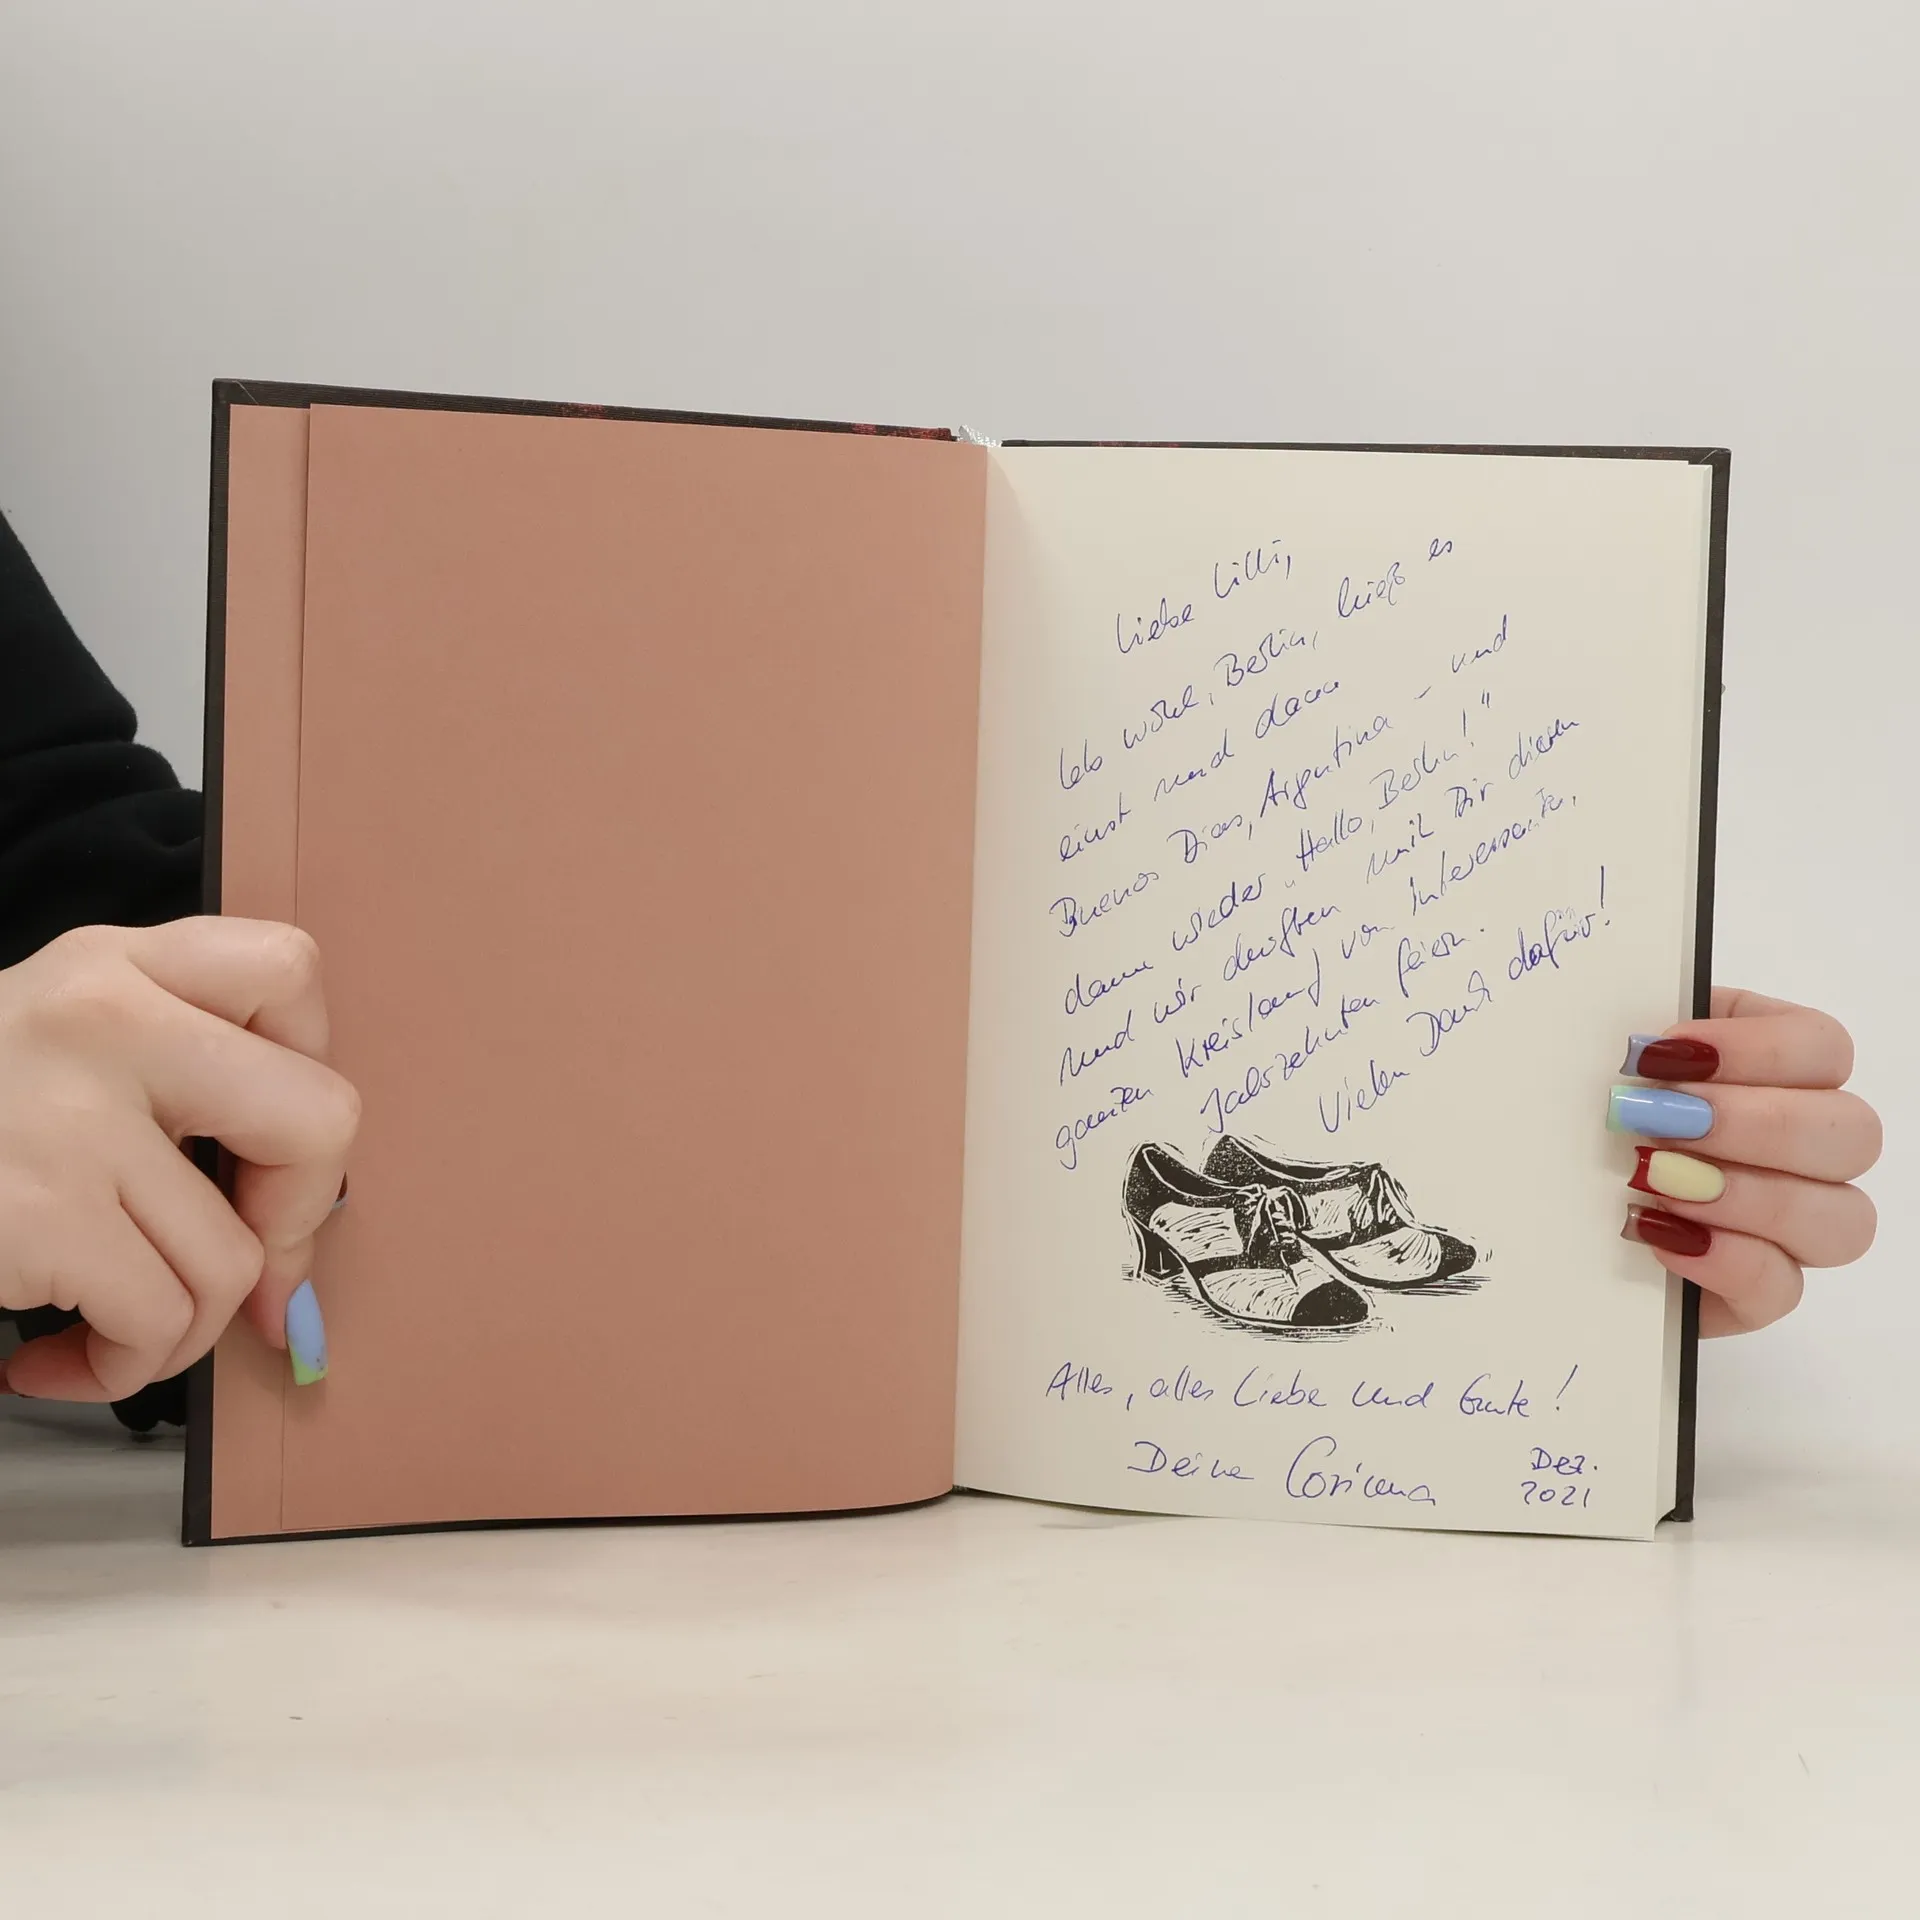 Liebe Lilli,
Leb wohl, Berlin, hieß es
einst und dann
Buenos Dias, Argentina – und
dann wieder „Hallo, Berlin!"
Und wir durften mit Dir diesen
ganzen Kreislauf von interessanten
Jahrzehnten feiern.
Vielen Dank dafür!
Alles, alles Liebe und Gute!
Deine Corinna
Dez.
2021